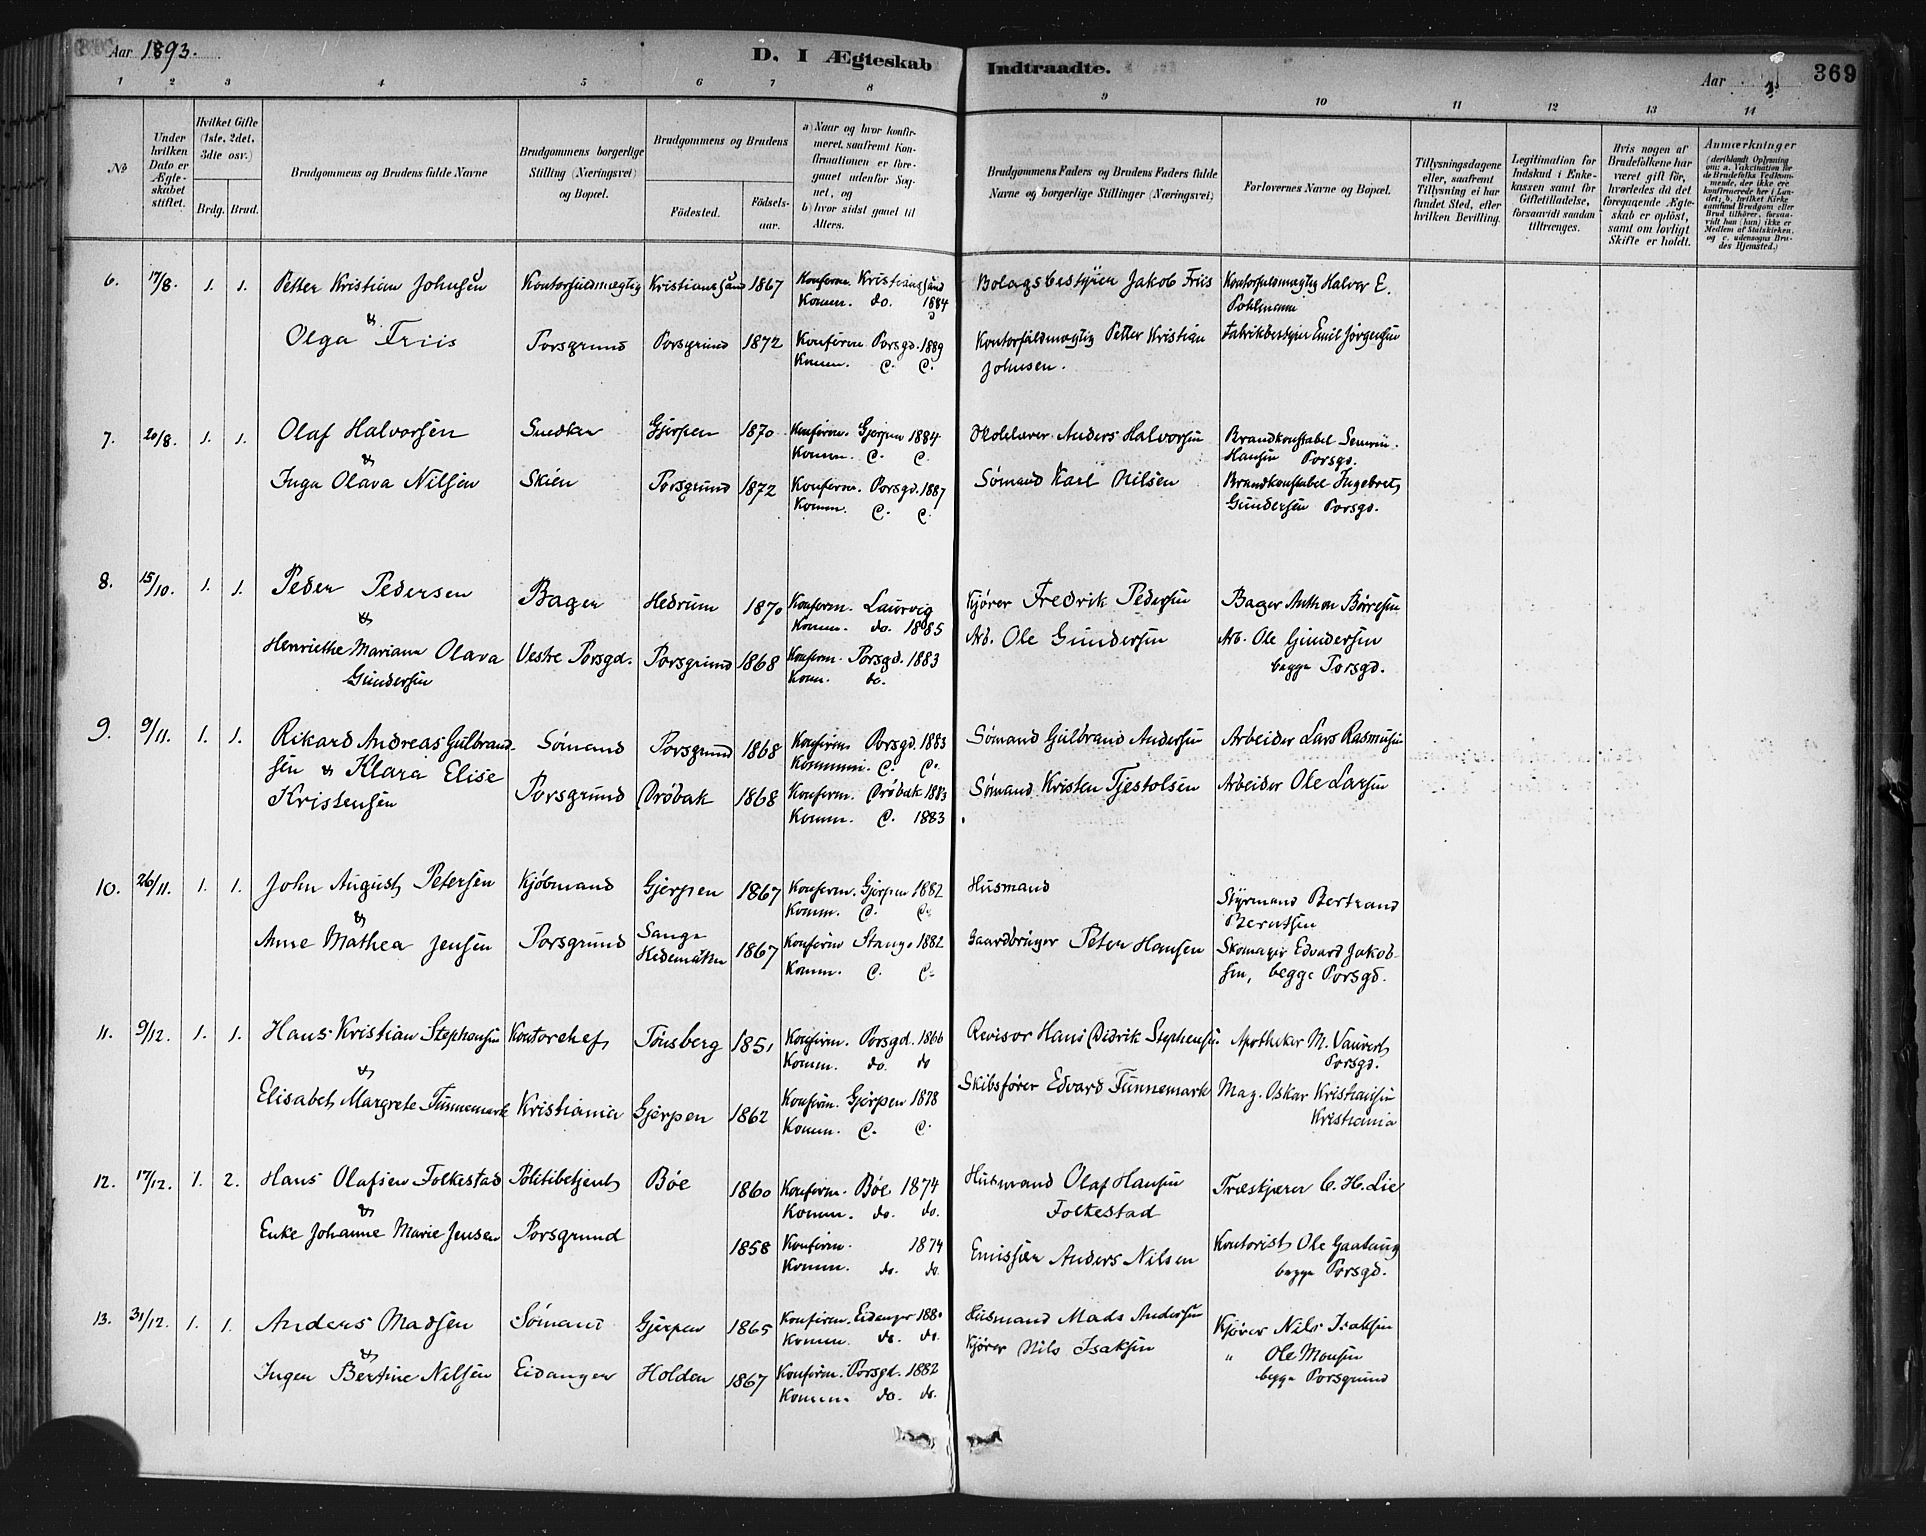 Aar 1893.
D. I Ægteskab Indtraadte.
Aar
369
1 2 3 4 5 6 7 8 9 10 11 12 13 14
No
Under hvilken Dato er Ægteskabet stiftet.
Hvilket Gifte (1ste, 2det, 3die osv.)
Brdg. Brud.
Brudgommens og Brudens fulde Navne
Brudgommens borgerlige Stilling (Næringsvei) og Bopæl.
Brudgommens og Brudens
Födested.
Födsels-aar.
a) Naar og hvor konfirmeret, saafremt Konfirmationen er foregaaet udenfor Sognet, og
b) hvor sidst gaaet til Alters.
Brudgommens Faders og Brudens Faders fulde Navne og borgerlige Stillinger (Næringsvei)
Forlovernes Navne og Bopæl.
Tillysningsdagene eller, saafremt Tillysning ei har fundet Sted, efter hvilken Bevilling.
Legitimation for Indskud i Enkekassen samt for Giftetilladelse, forsaavidt saadan tiltrænges.
Hvis nogen af Brudefolkene har været gift för, hvorledes da det foregaaende Ægteskab er oplöst, samt om lovligt Skifte er holdt.
Anmærkninger
(deriblandt Oplysning om: a. Vaksination for de Brudefolks Vedkommende, der ikke ere konfirmerede her i Landet; b. hvilket Kirkesamfund Brudgom eller Brud tilhörer, forsaavidt han (hun) ikke er Medlem af Statskirken, og c. udensogns Brudes Hjemsted.)
6. 17/8. 1. 1. Petter Kristian Johnsen Kontorfuldmægtig Kristianssund 1867 Konferm. Kristianssund
Komm. do. 1884
Bolagsbestyrer Jakob Friis Kontorfuldmægtig Halvor E. Pohlmann
& Olga Friis Porsgrund Porsgrund 1872 Konferm. Porsgd. 1889
Komm. C. C.
Kontorfuldmægtig Petter Kristian Johnsen. Fabrikbestyrer Emil Jørgensen
7. 20/8. 1. 1. Olaf Halvorsen Snedker Gjerpen 1870 Konferm. Gjerpen 1884
Komm. C. C.
Skolelærer Anders Halvorsen Brandkonstabel Hansen Porsgd.
& Inga Olava Nilsen Skien Porsgrund 1872 Konferm. Porsgd. 1887
Komm. C. C.
Sømand Karl Nilsen Brandkonstabel Ingebret Gundersen Porsgd.
8. 15/10. 1. 1. Peder Pedersen Bager Hedrum 1870 Konferm. Laurvig
Komm. do. 1885
Kjører Fredrik Pedersen Bager Anthon Børresen
& Henriette Mariane Olava Gundersen Vestre Porsgd. Porsgrund 1868 Konferm. Porsgd. 1883
Kom. do.
Arb. Ole Gundersen Arb. Ole Gundersen
begge Porsgd.
9. 9/11. 1. 1. Rikard Andreas Gulbrandsen Sømand Porsgrund 1868 Konferm Porsgd. 1883
Kommun. C. C.
Sømand Gulbrand Andersen Arbeider Lars Rasmusen
& Klara Elise Kristensen Porsgrund Drøbak 1868 Konferm. Drøbak 1883
Komm. C. 1883
Sømand Kristen Tjestolsen Arbeider Ole Larsen
10. 26/11. 1. 1. John August Petersen Kjøbmand Gjerpen 1867 Konferm. Gjerpen 1882
Komm. C. C.
Husmand Styrmand Bertrand Berntsen
& Anne Mathea Jensen Porsgrund Sange Hedemarken 1867 Konferm Stange 1882
Komm. C. C.
Gaardbruger Peter Hansen Skomager Edvard Jakobsen, begge Porsgd.
11. 9/12. 1. 1. Hans Kristian Stephansen Kontorchef Tønsberg 1851 Konferm. Porsgd. 1866
Komm. do. do
Revisor Hans Didrik Stephensen. Apotheker M. Vauvert
Porsgd.
& Elisabet Margrete Funnemark Kristiania Gjerpen 1862 Konferm. Gjerpen 1878
Komm. C. C.
Skibsfører Edvard Funnemark Mag. Oskar Kristiansen
Kristiania
12. 17/12. 1. 2. Hans Olafsen Folkestad Politibetjent Bøe 1860 Konferm. Bøe 1874
Komm. do. do.
Husmand Olaf Hansen Folkestad Træskjærer C. H. Lie
& Enke Johanne Marie Jensen Porsgrund 1858 Konferm. 1874
Komm. do. do.
Emissær Anders Nilsen Kontorist Ole Gaatang
begge Porsgd.
13. 31/12. 1. 1. Anders Madsen Sømand Gjerpen 1865 Konferm. Eidanger 1880
Komm. do. do.
Husmand Mads Andersen Kjører Nils Isaksen
& Ingen Bertine Nilsen Eidanger Holden 1867 Konferm. Porsgd. 1882
Komm. do. do.
Kjører Nils Isaksen " Ole Monsen
begge Porsgrund